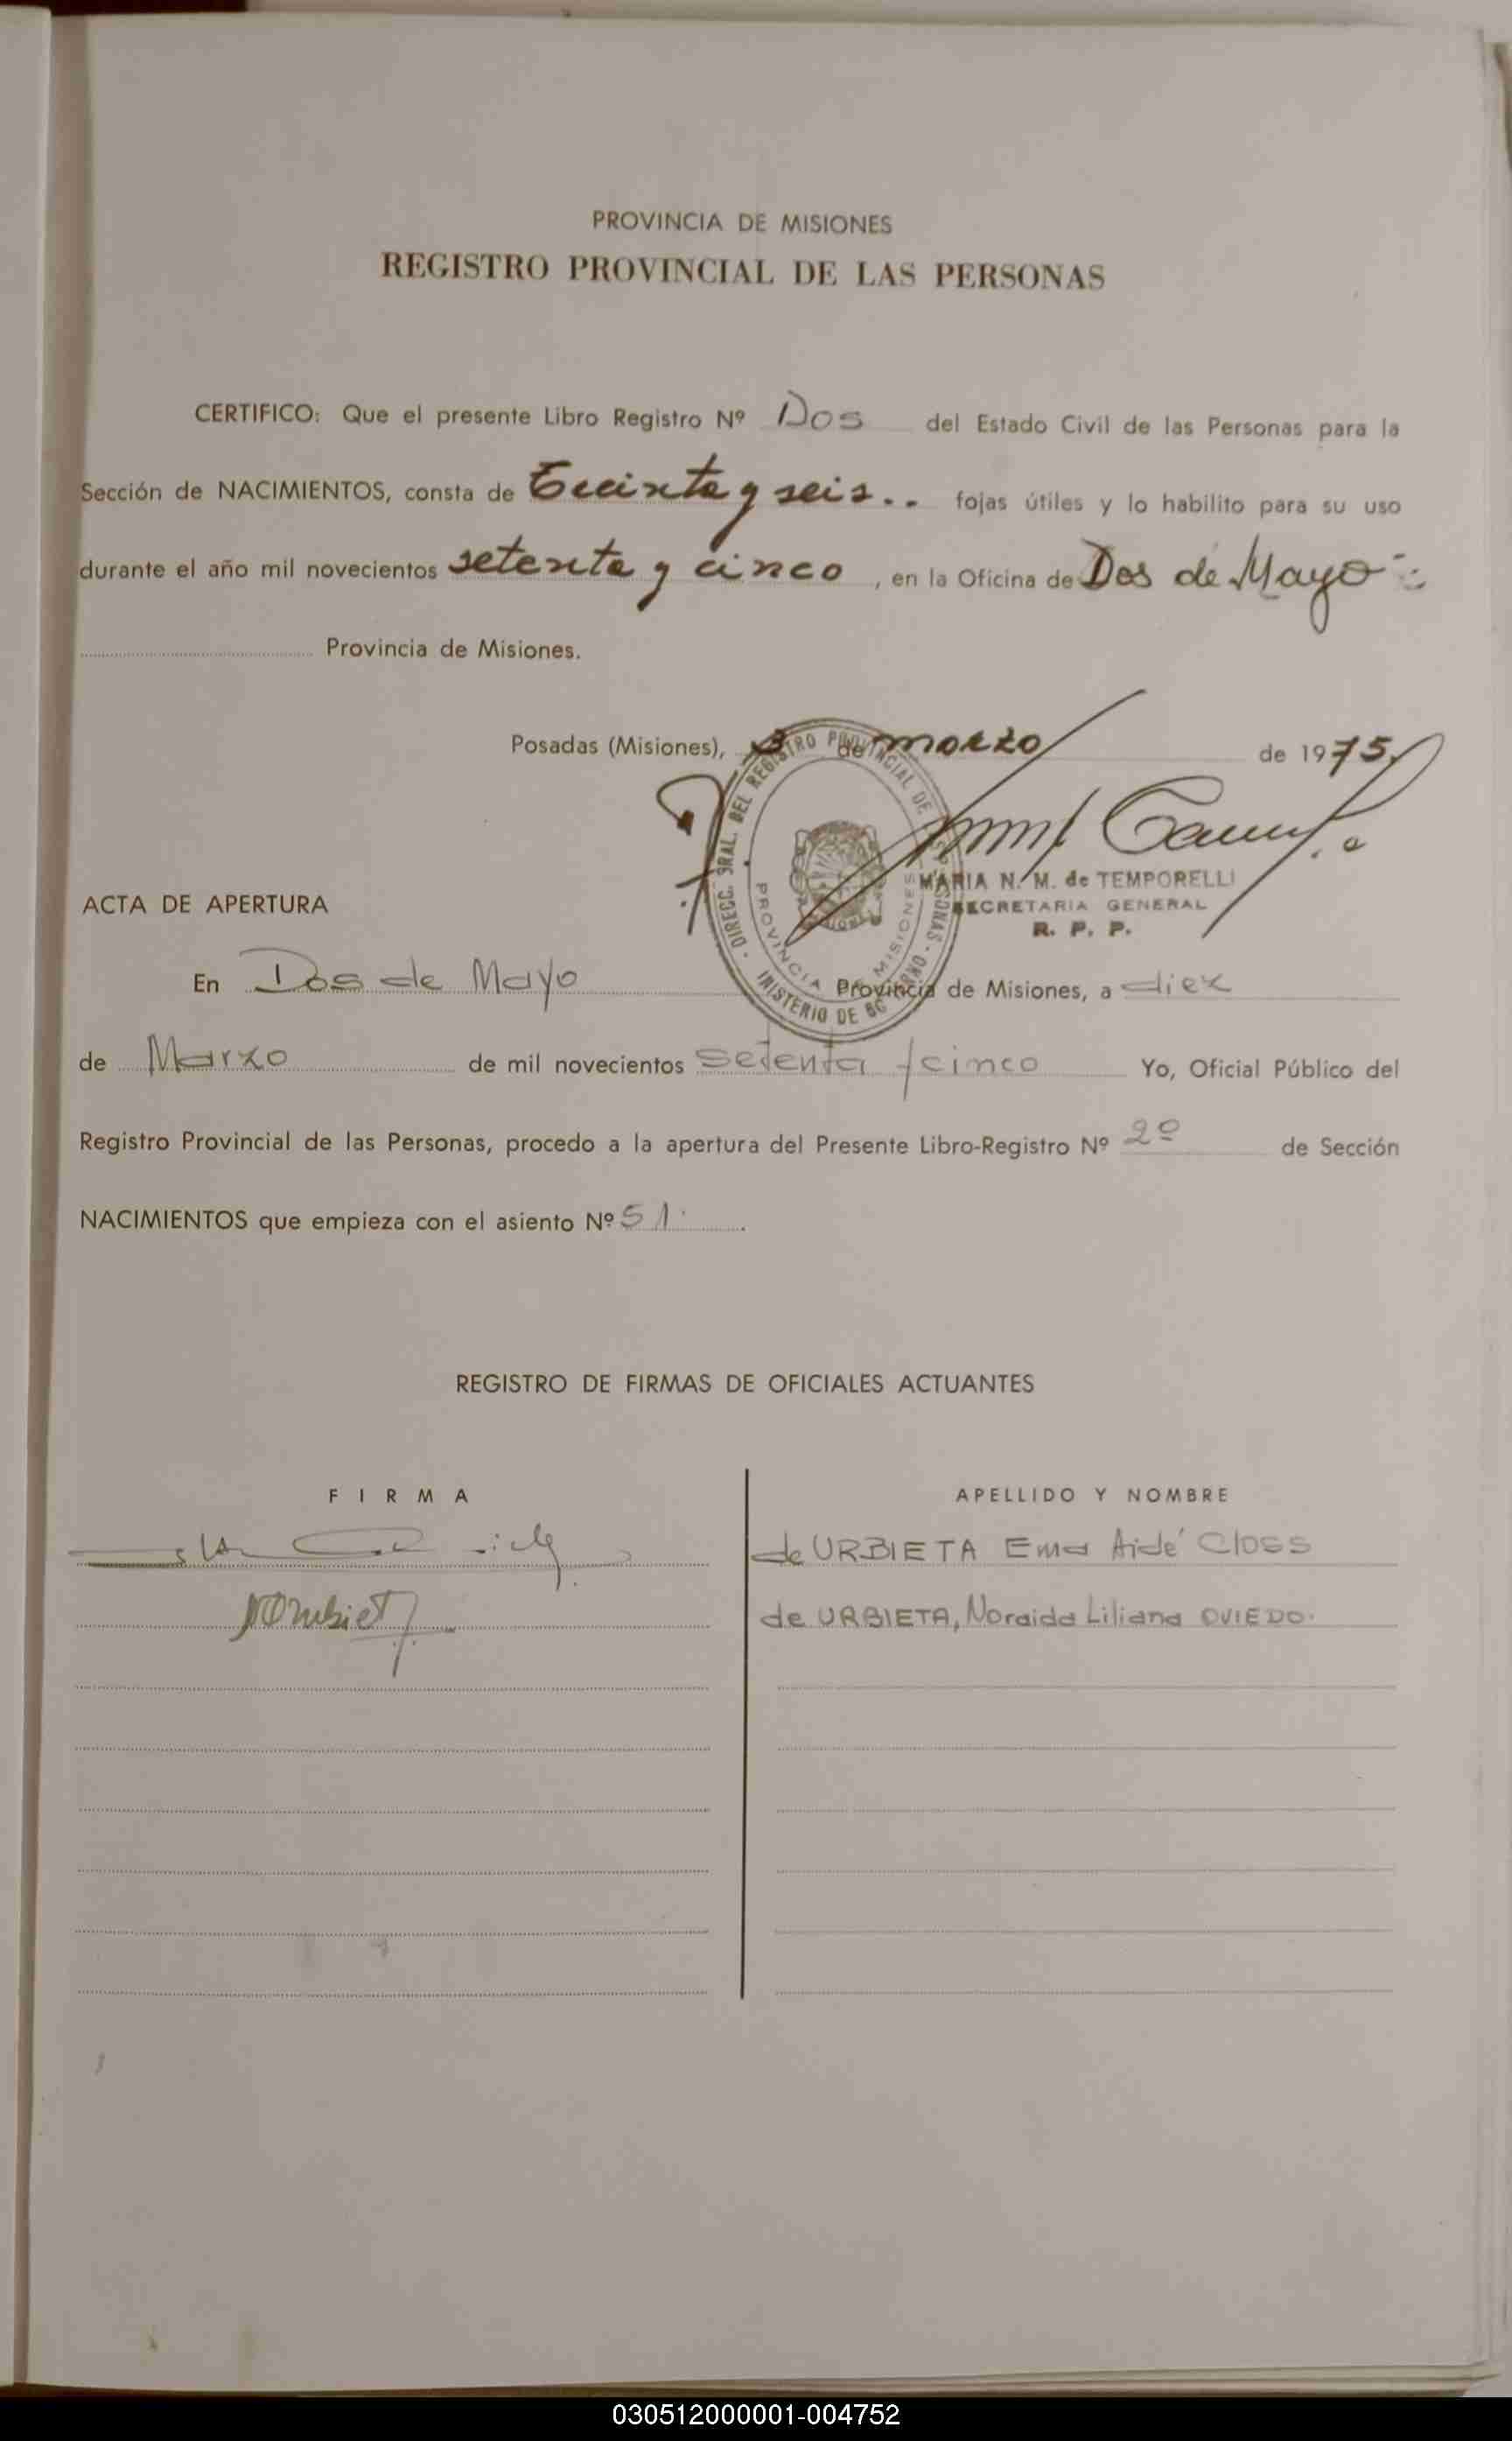 PROVINCIA DE MISIONES
REGISTRO PROVINCIAL DE LAS PERSONAS
CERTIFICO: Que el presente Libro Registro Nº Dos del Estado Civil de las Personas para la
Sección de NACIMIENTOS, consta de Treinta y seis.. fojas útiles y lo habilito para su uso
durante el año mil novecientos setenta y cinco, en la Oficina de Dos de Mayo
Provincia de Misiones.
Posadas (Misiones), 3 de marzo de 1975
DIRECC. GRAL. DEL REGISTRO PROVINCIAL DE LAS PERSONAS
MINISTERIO DE GOBIERNO
PROVINCIA DE MISIONES
MARIA N. M. de TEMPORELLI
SECRETARIA GENERAL
R. P. P.
ACTA DE APERTURA
En Dos de Mayo Provincia de Misiones, a diez
de Marzo de mil novecientos setenta y cinco Yo, Oficial Público del
Registro Provincial de las Personas, procedo a la apertura del Presente Libro-Registro Nº 2º de Sección
NACIMIENTOS que empieza con el asiento Nº 51.
REGISTRO DE FIRMAS DE OFICIALES ACTUANTES
FIRMA APELLIDO Y NOMBRE
de URBIETA Ema Aidé Closs
de URBIETA, Noraida Liliana OVIEDO.
030512000001-004752